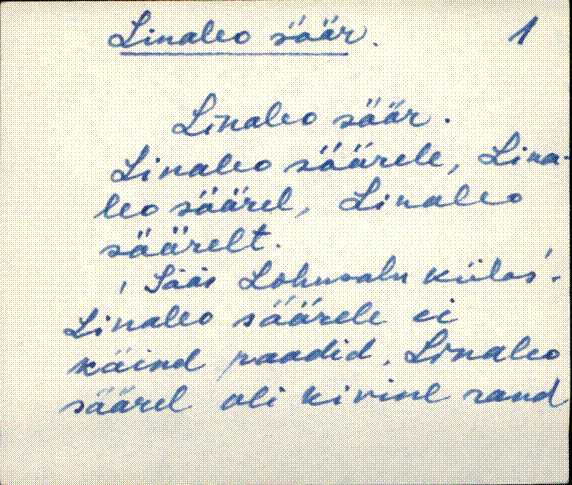 Linaleo säär. 1
Linaleo säär.
Linaleo säärele, Lina-
leo säärel, Linaleo
säärelt.
'Säär Lohusalu külas'.
Linaleo säärele ei
käind paadid. Linaleo
säärel oli kivine rand